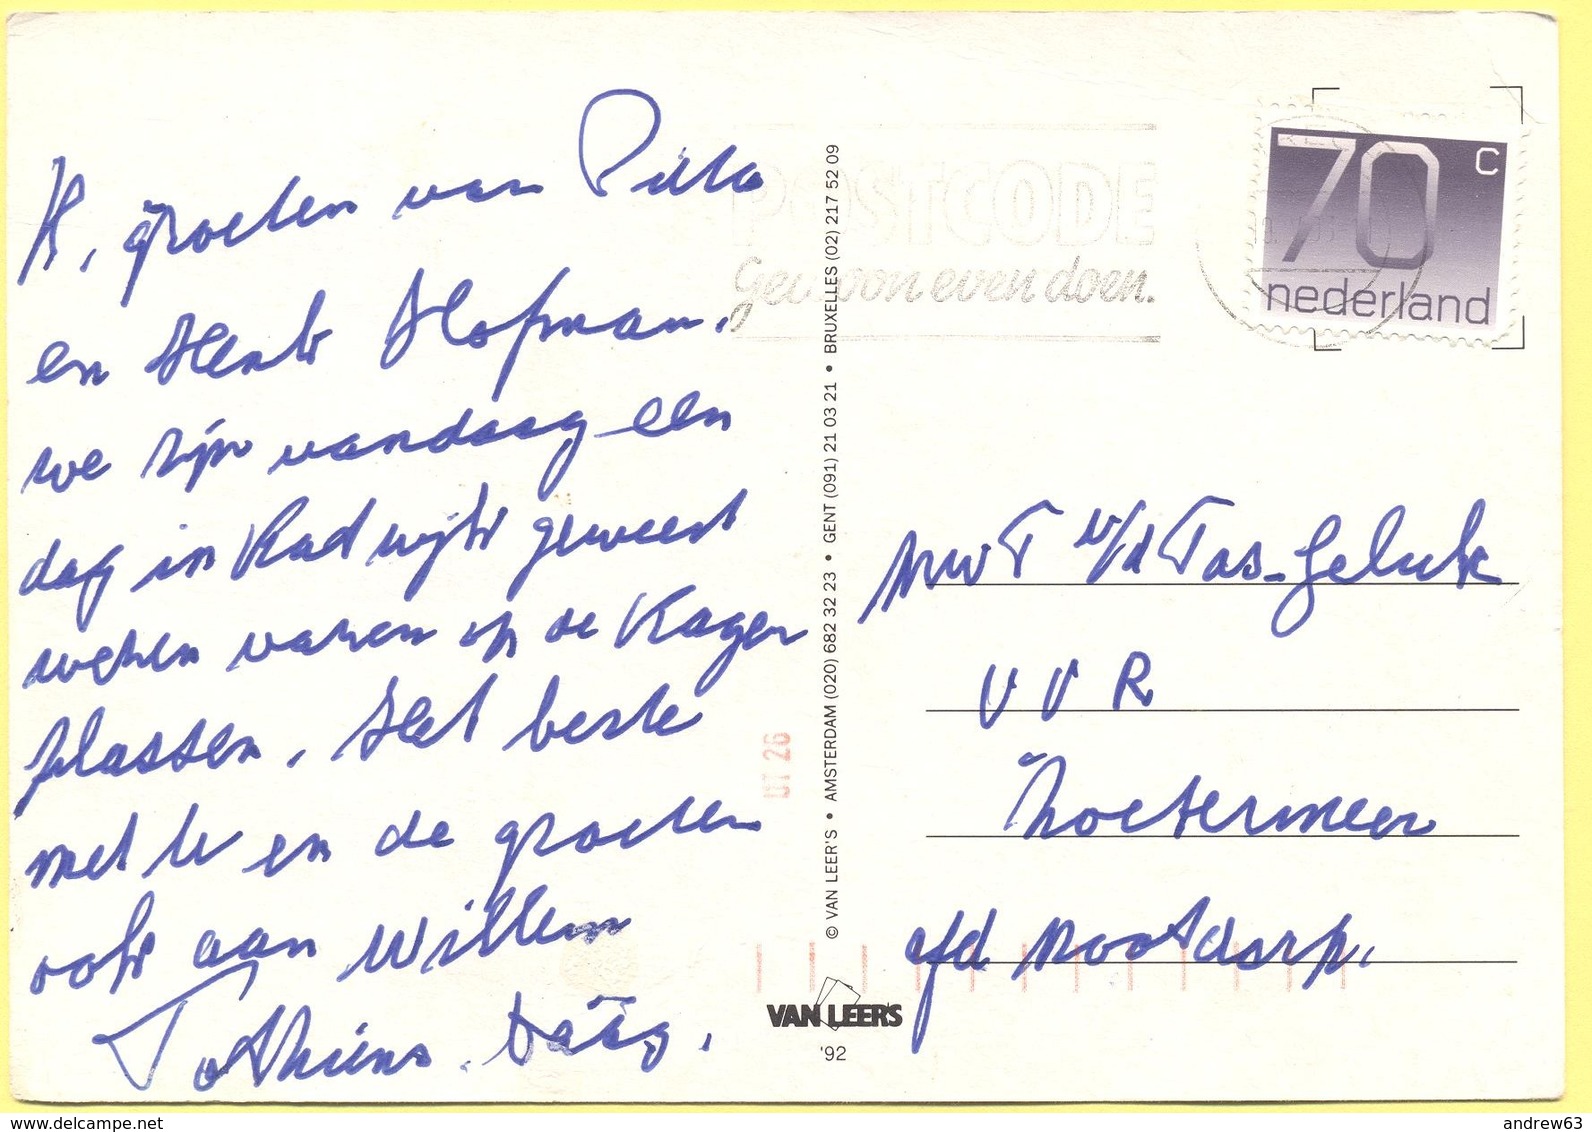 H, groeten van Pilla
en Henk Hofman.
we zijn vandaag een
dag in Kadwijk geweest
weren varen op de Kager
plassen. Het beste
met U en de groeten
ook aan Willem
Tot ziens. Dààg.
POSTCODE
gewoon even doen.
70 c
nederland
© VAN LEER'S • AMSTERDAM (020) 682 32 23 • GENT (091) 21 03 21 • BRUXELLES (02) 217 52 09
mw T v/d Tas-Geluk
V V R
Zoetermeer
afd Nootdorp.
UT 26
VAN LEER'S
'92
www.delcampe.net
andrew63